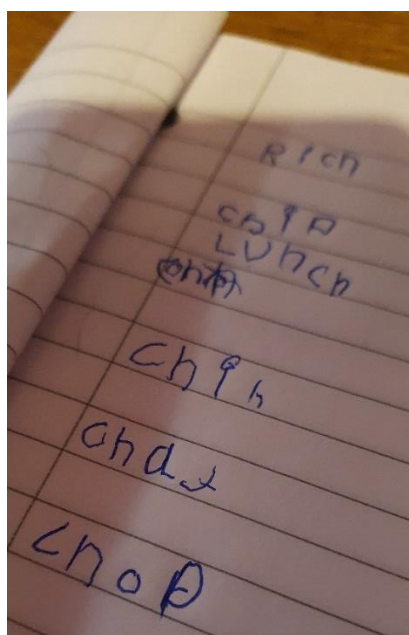 Rich
chip
Lunch
chin
chat
chop